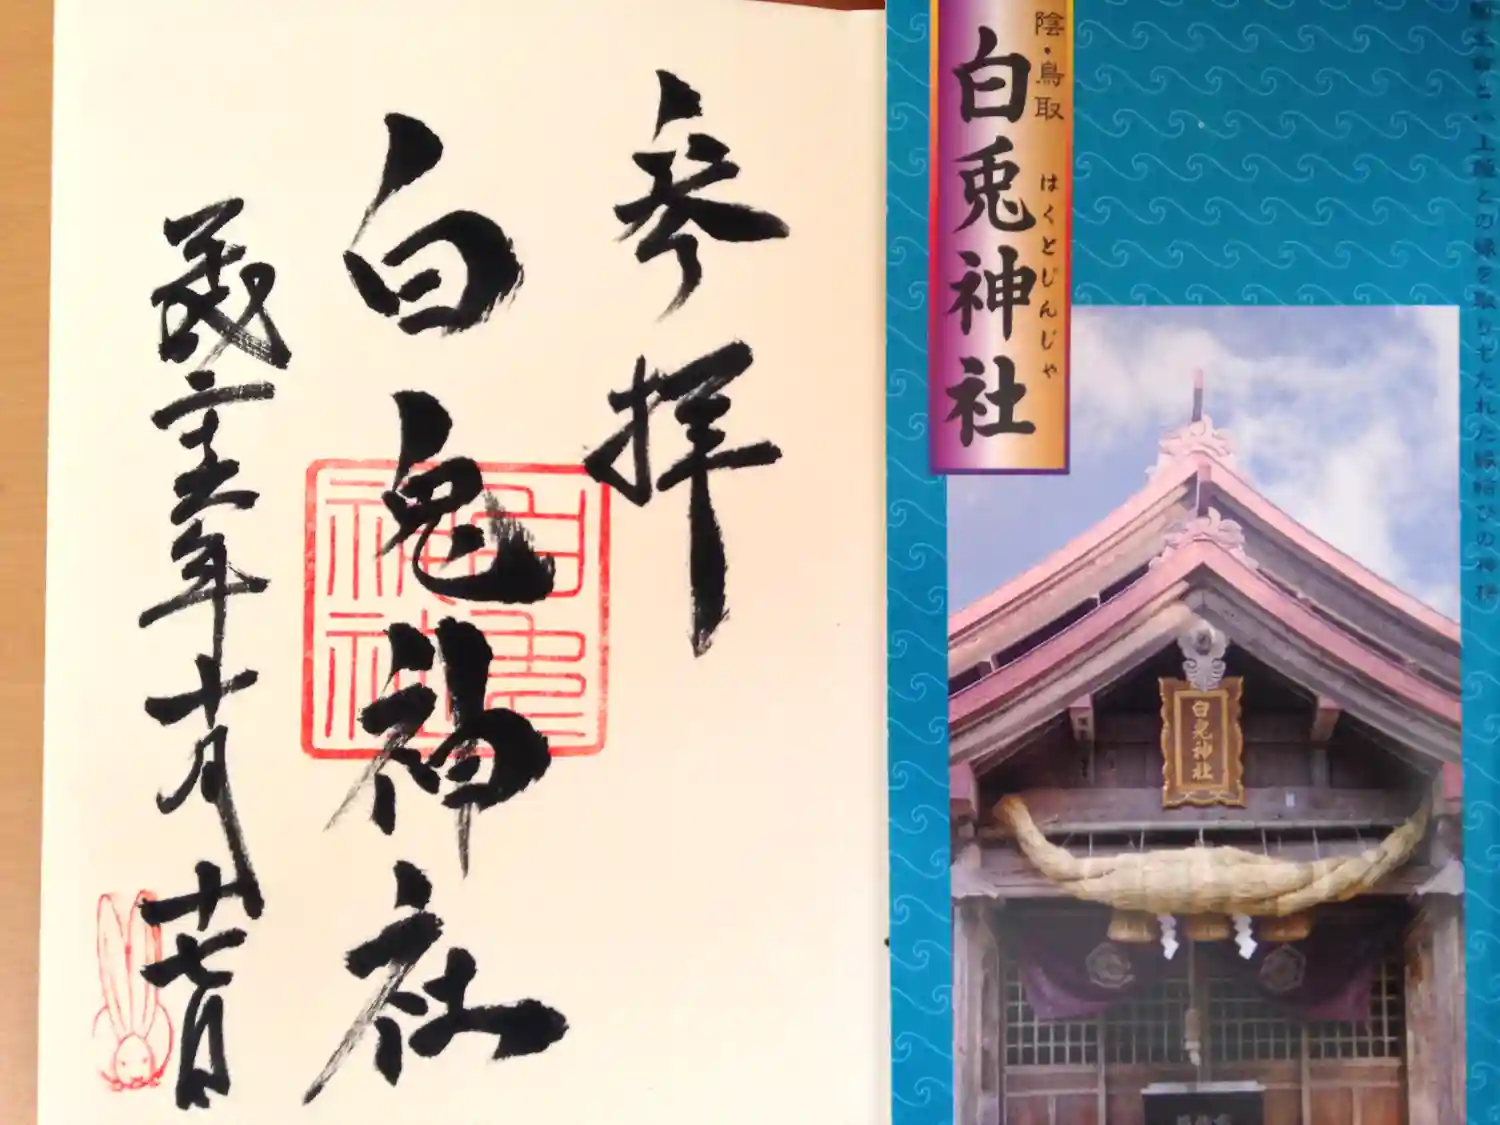 参拝
白兎神社
平成二十五年十月十七日
白兎
神社
陰・鳥取
はくとじんじゃ
白兎神社
上姫との縁を取りもたれた縁結びの神様
白兎神社